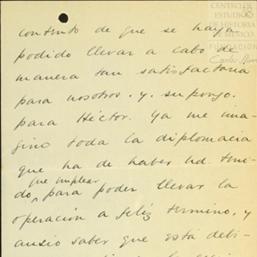 CENTRO DE
ESTUDIOS
DE HISTORIA
DE MÉXICO
FUNDACIÓN
contento de que se haya
podido llevar a cabo de
manera tan satisfactoria
para nosotros. y. supongo.
para Héctor. Ya me ima-
gino toda la diplomacia
que ha de haber ud teni-
que emplear
do, para poder llevar la
operación a feliz termino, y
ansio saber que está debi-